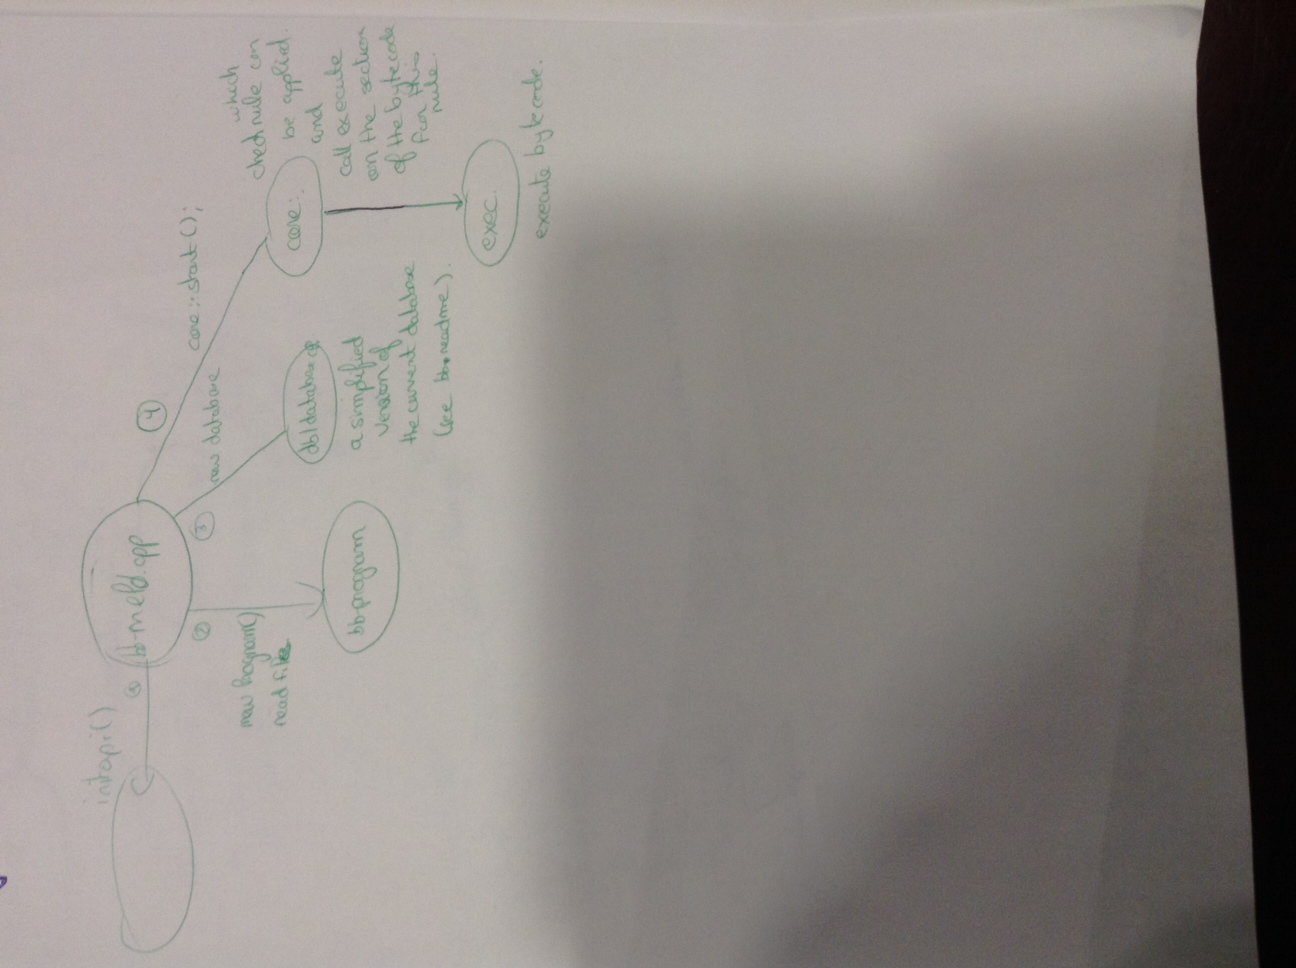 initapi()
①
bb-meld.cpp
②
new Program()
read file
bb-program
③
new database
db/database.cpp
a simplified
version of
the current database
(see readme).
④
core::start();
core:
check which rule can
be applied.
and
call execute
on the section
of the bytecode
for this
rule
exec.
execute bytecode.